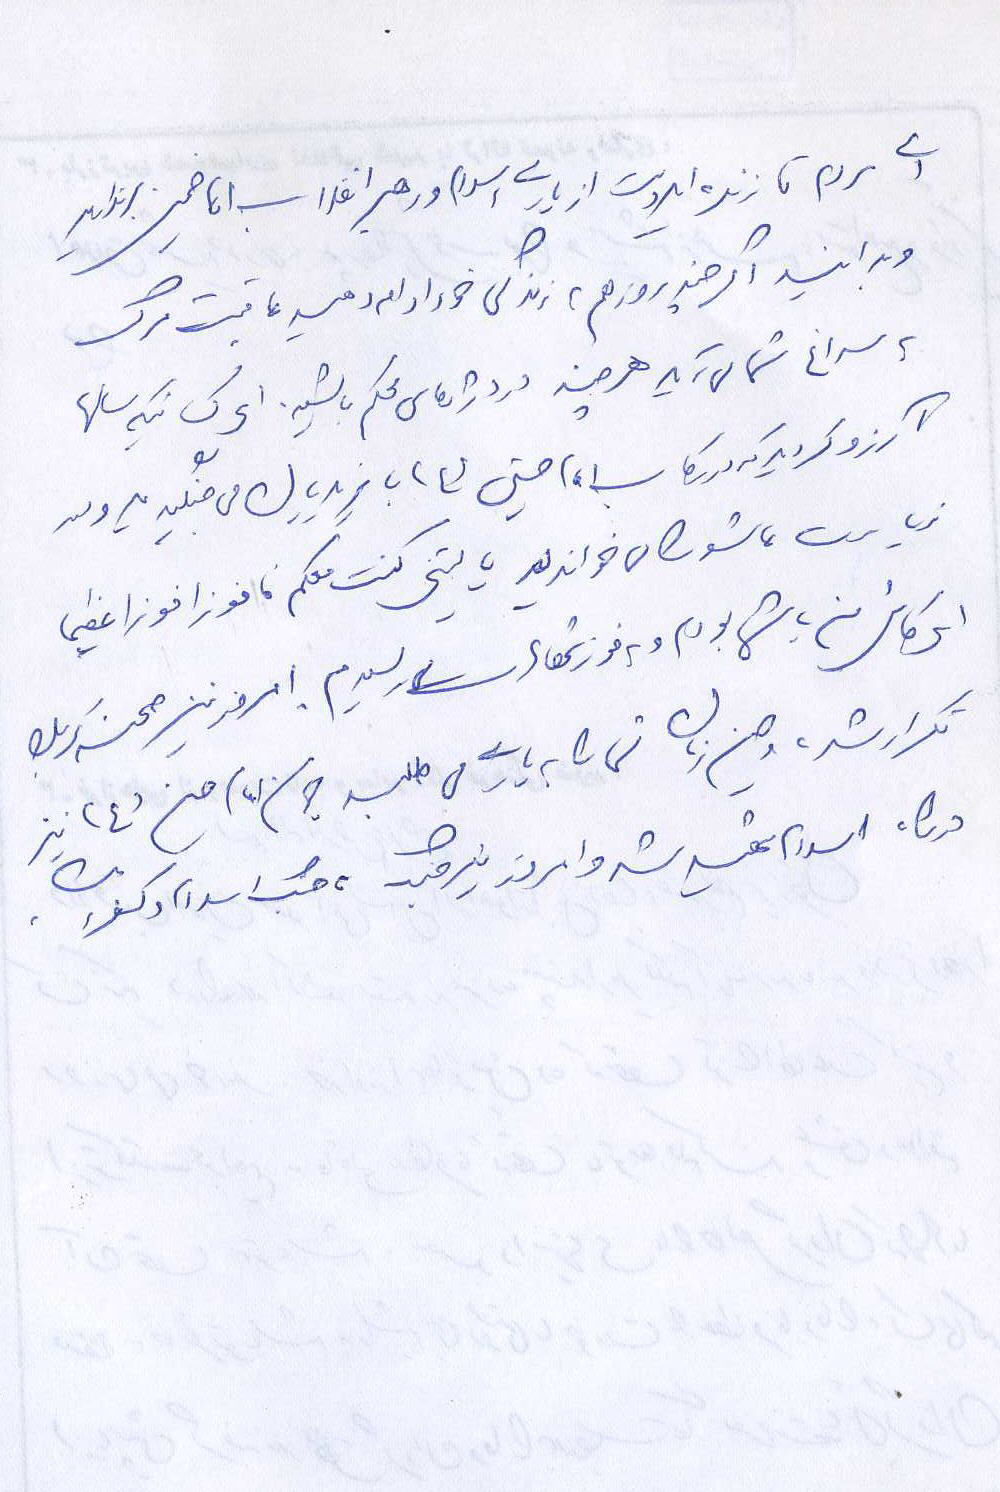 ای مردم تا زنده اید دست از یاری اسلام و رهبر انقلاب امام خمینی برندارید
و بدانید اگر چند روز هم به زندگی خود ادامه دهید عاقبت مرگ
به سراغ شما می آید هر چند در دژهای محکم باشید. ای کسانیکه سالها
آرزو کردید که در رکاب امام حسین (ع) با یزیدیان می جنگیدید و در
زیارت عاشورا می خواندید یا لیتنی کنت معکم فافوز فوزا عظیما
ای کاش من با شما بودم و به فوز شهادت می رسیدم. امروز نیز صحنه کربلا
تکرار شده، حسین زمان شما را به یاری می طلبد چون امام حسین (ع) نیز
در راه اسلام شهید شد و امروز نیز جنگ، جنگ اسلام و کفر است.